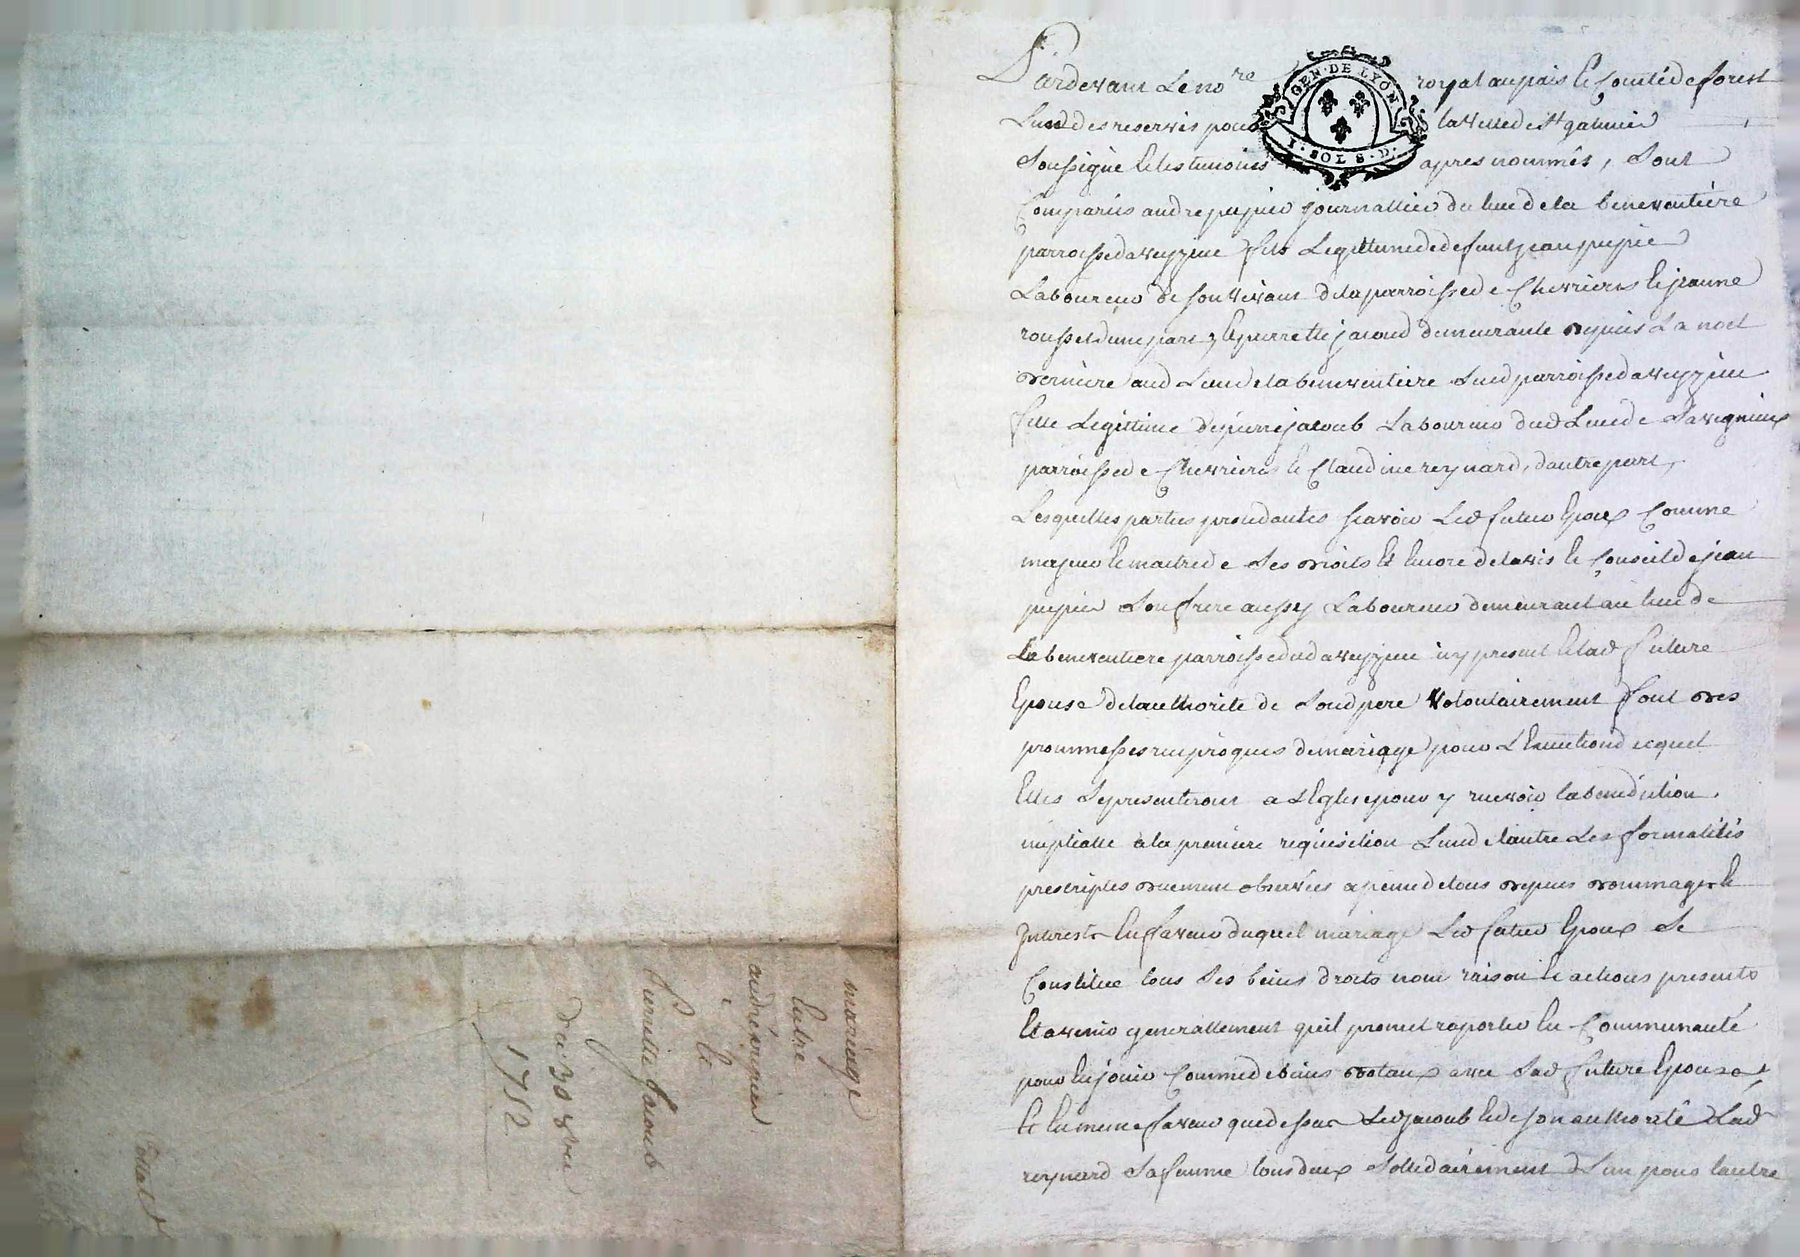 mariage
Entre
andré pupier
&
Pierrette Jacoub
Du 30 8bre
1752
Pardevant Le no.re royal au pais & Comté de forest
des reservés pour la ville de St galmier
Soussigné & les temoins apres nommés, Sont
Comparus andre pupier journallier du lieu de la beneventiére
parroisse daveyzieu fils Legittime de defunt jean pupier
Laboureur de son vivant de la parroisse de Chevrieres & jeanne
rousset dune part, & pierrette jacoud demeurante depuis La noel
derniere aud Lieu de la beneventiere Susd parroisse daveyzieu
fille Legittime de pierre jacoub Laboureur dud Lieu de Savignieux
parroisse de Chevrieres & Claudine reynard, dautre part,
Lesquelles parties procedantes scavoir Led futur Epoux Comme
majeur & maitre de Ses droits Et Encore de lavis & Conseil de jean
pupier Son frere aussy Laboureur demeurant au lieu de
La beneventiere parroisse dud aveyzieu icy present Et lad future
Epouse de lauthorité de Sond pere volontairement font des
prommesses reciproques de mariage pour L'Execution dicquel
Elles Se presenteront a L'Eglise pour y recevoir la benediction
nuptialle a la premiere requisition Lune de lautre Les formalités
prescriptes duement observées a peine de tous depens dommages &
Interests En faveur duquel mariage Led futur Epoux Se
Constitue tous Ses biens droits nom raison & actions presents
Et avenir generallement quil promet raporter En Communauté
pour En jouir Comme de biens dotaux avec Sad future Epouse
& En meme faveur que dessus Led jacoub & de son authorité Lad
reynard Sa femme tous deux Sollidairement L'un pour lautre
GEN · DE LYON
1 · SOL 8 · D.